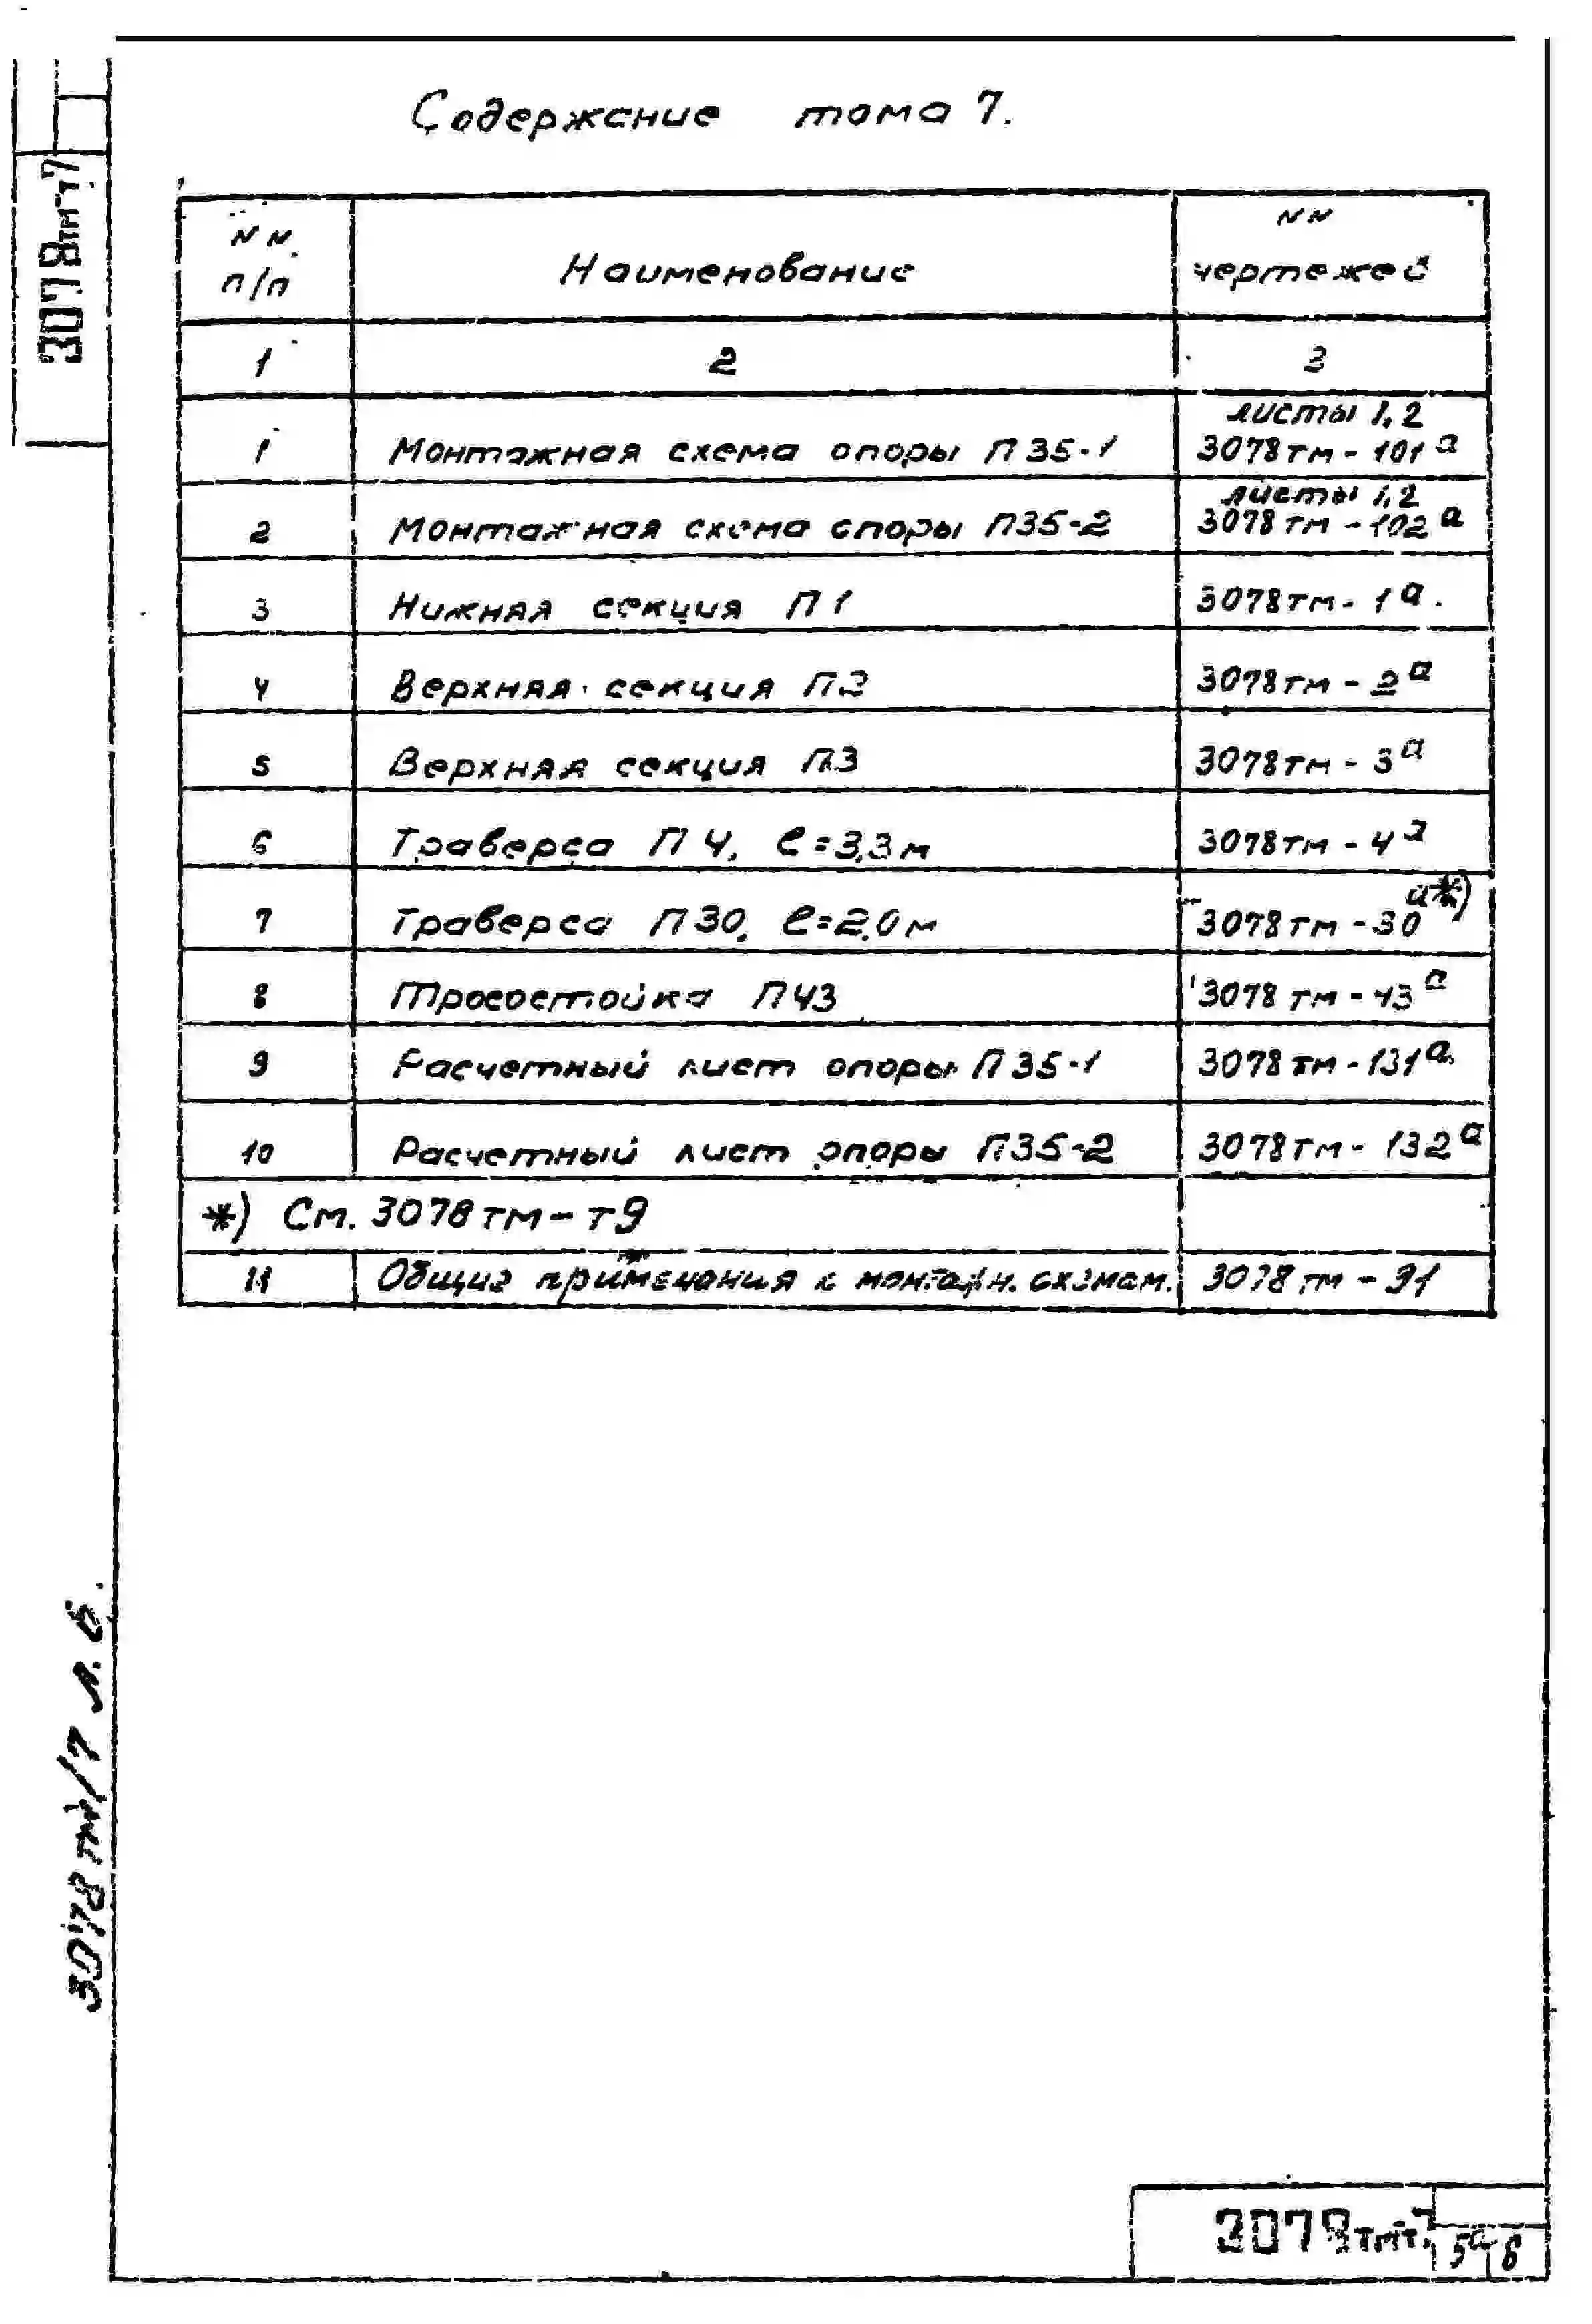 Содержание тома 7.
NN п/п Наименование NN чертежей
1 2 3
1 Монтажная схема опоры П35-1 листы 1,2 3078тм-101а
2 Монтажная схема опоры П35-2 листы 1,2 3078тм-102а
3 Нижняя секция П1 3078тм-1а.
4 Верхняя секция П2 3078тм-2а
5 Верхняя секция П3 3078тм-3а
6 Траверса П4, ℓ=3,3м 3078тм-4а
7 Траверса П30, ℓ=2,0м 3078тм-30а*)
8 Тросостойка П43 3078тм-43а
9 Расчетный лист опоры П35-1 3078тм-131а
10 Расчетный лист опоры П35-2 3078тм-132а
*) См. 3078тм-т9
11 Общие примечания к монтажн. схемам. 3078тм-91
3078тм-т7
3078тм/7 л. 6.
3078тм-т7 5а 6